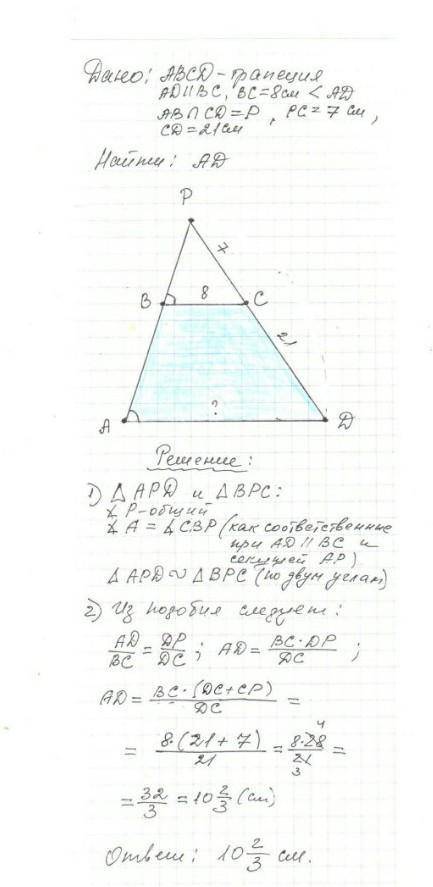 Дано: ABCD-трапеция
AD||BC, BC=8см < AD
AB∩CD=P, PC=7 см,
CD=21см
Найти: AD
P
7
B 8 C
21
?
A D
Решение:
1) △ APD и △BPC:
∡ P-общий
∡ A = ∡CBP (как соответственные
при AD || BC и
секущей AP)
△ APD ~ △ BPC (по двум углам)
2) Из подобия следует:
AD/BC = DP/DC ; AD = BC·DP/DC ;
AD = BC·(DC+CP)/DC =
= 8·(21+7)/21 = 8·28/21 =
4
3
= 32/3 = 10 2/3 (см)
Ответ: 10 2/3 см.